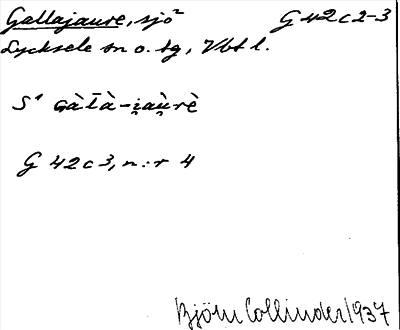 Gallajaure, sjö² G 42 c 2-3
Lycksele sn o. tg, Vbt l.
S¹ gàl̄à-i̯àu̯rè
G 42 c 3, n:r 4
Björn Collinder 1937